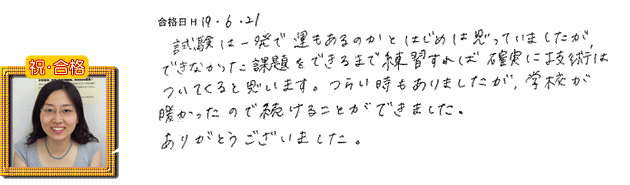 合格日 H 19・6・21
試験は一発で運もあるのかとはじめは思っていましたが、
できなかった課題をできるまで練習すれば確実に技術は
ついてくると思います。つらい時もありましたが、学校が
暖かったので続けることができました。
ありがとうございました。
祝・合格